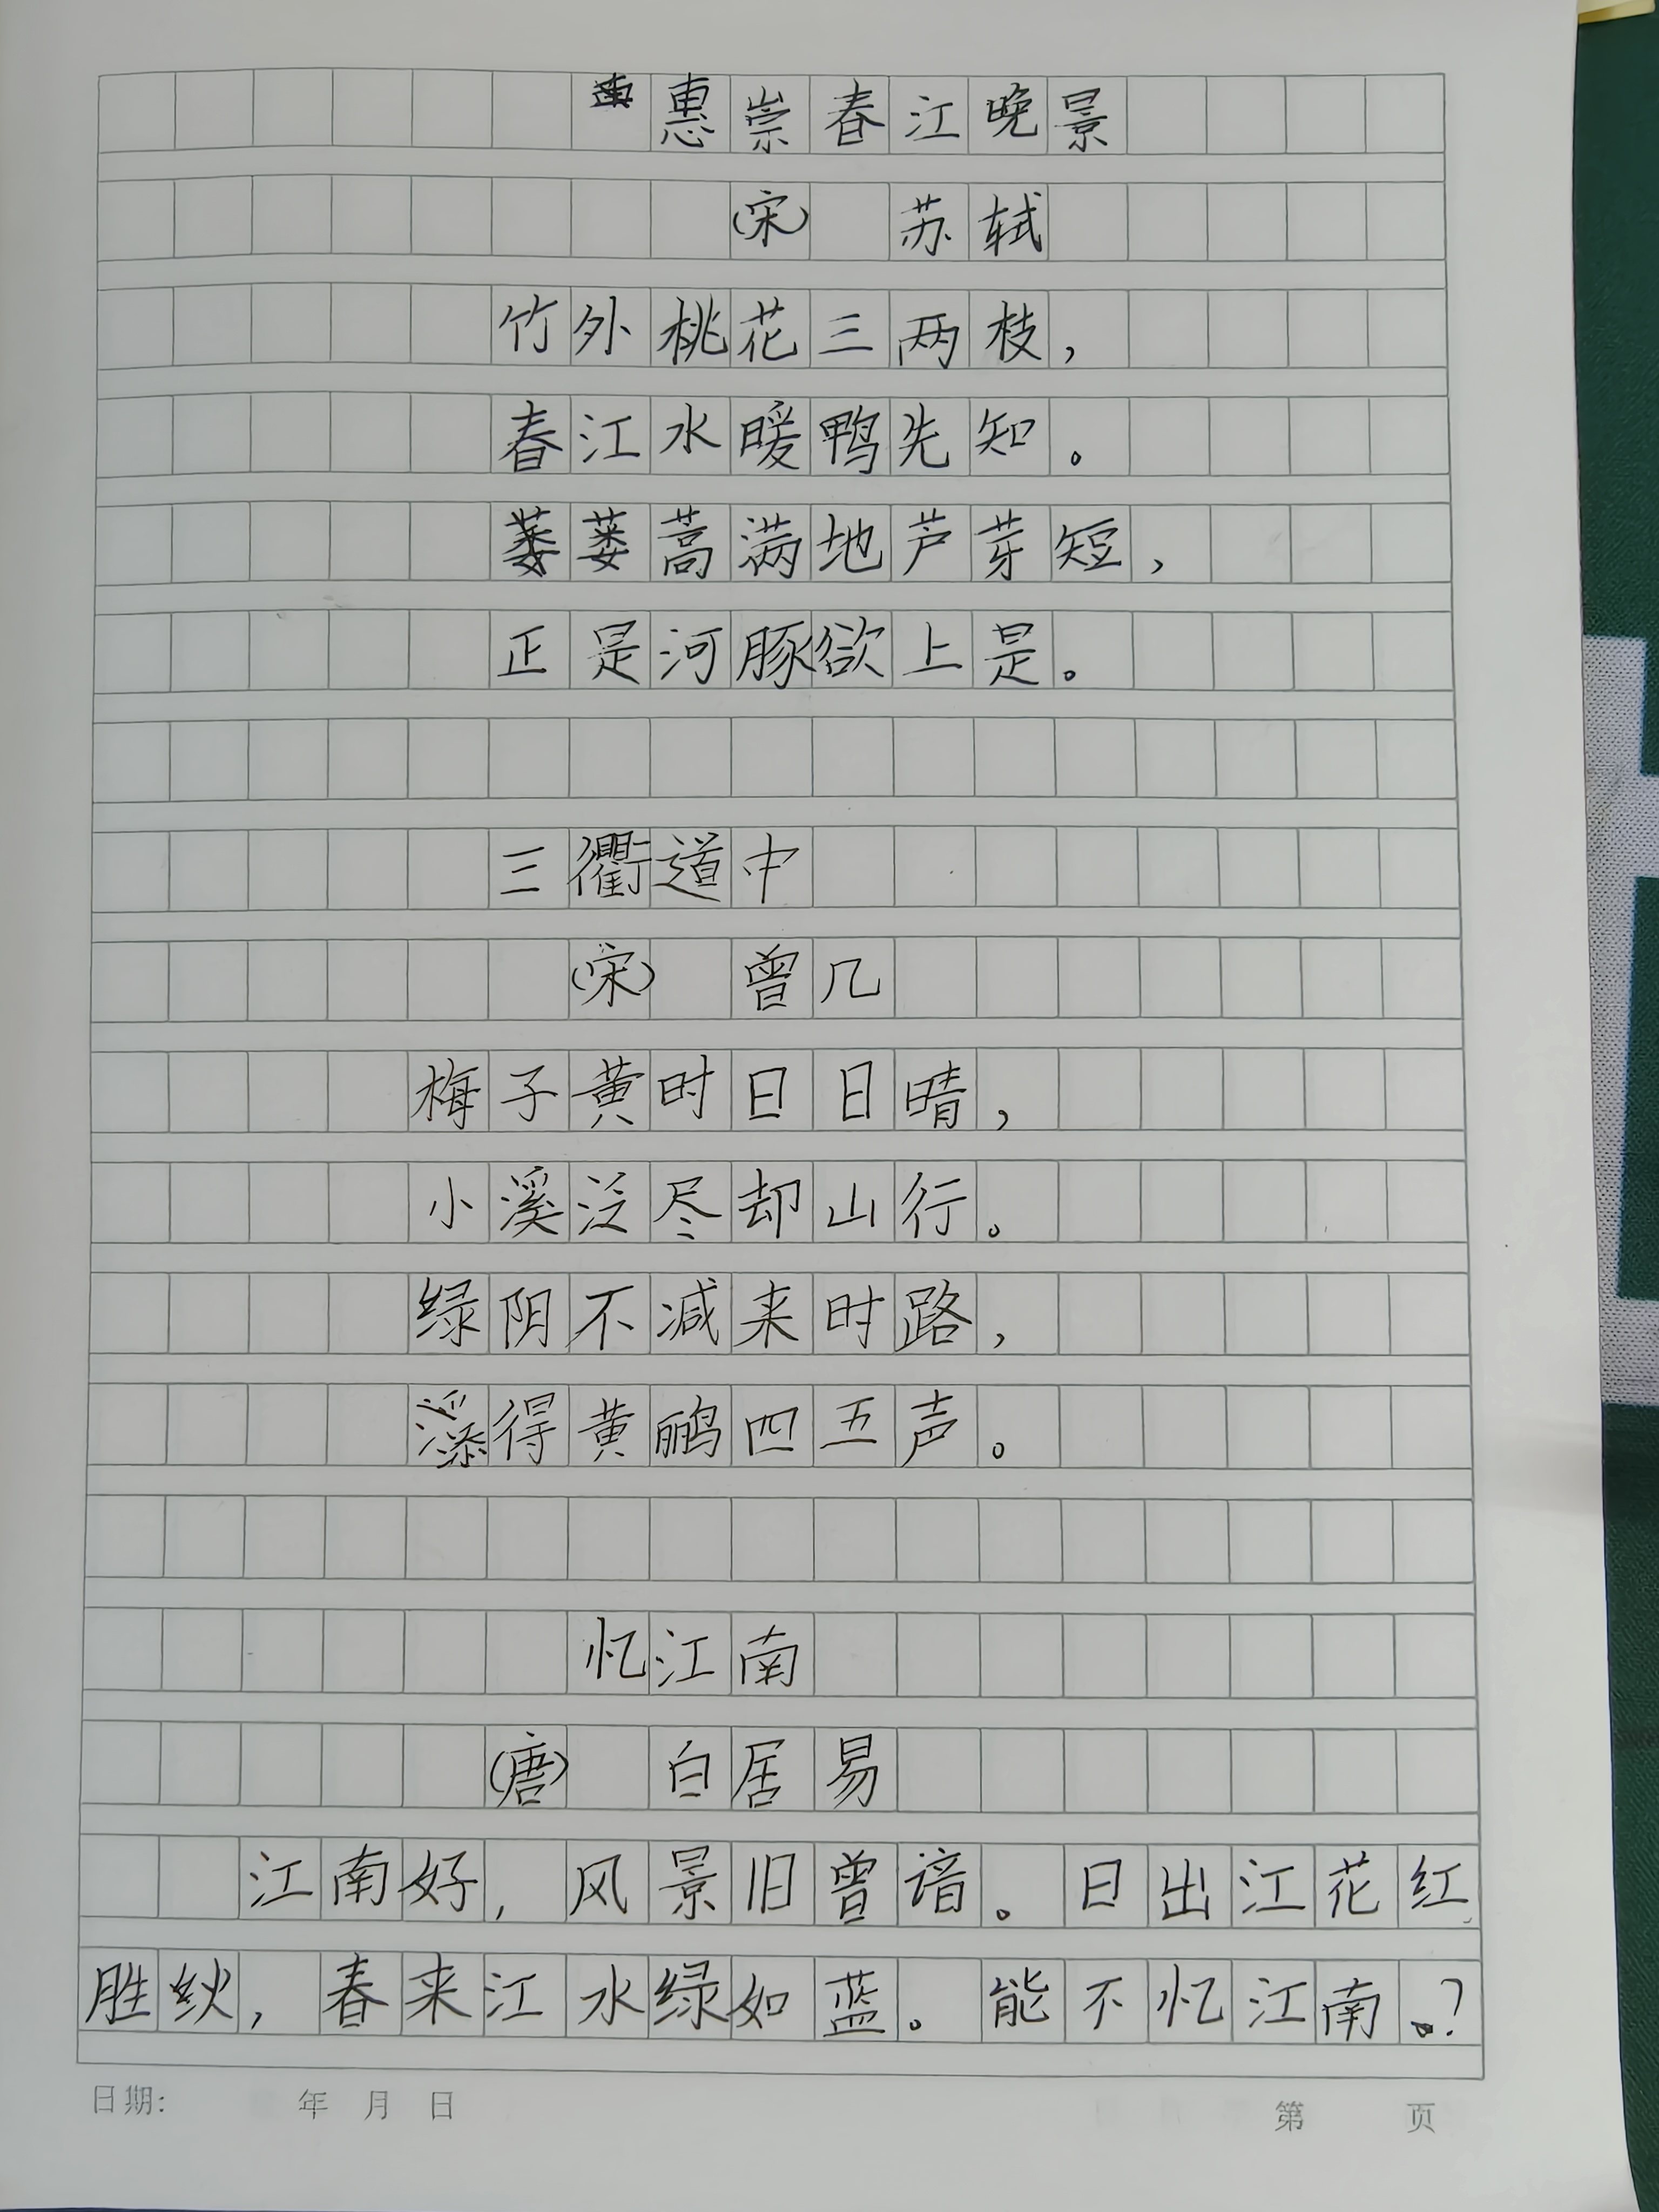 惠崇春江晚景
（宋） 苏轼
竹外桃花三两枝，
春江水暖鸭先知。
蒌蒿满地芦芽短，
正是河豚欲上是。
三衢道中
（宋） 曾几
梅子黄时日日晴，
小溪泛尽却山行。
绿阴不减来时路，
添得黄鹂四五声。
忆江南
（唐） 白居易
江南好，风景旧曾谙。日出江花红
胜火，春来江水绿如蓝。能不忆江南？
日期： 年 月 日 第 页